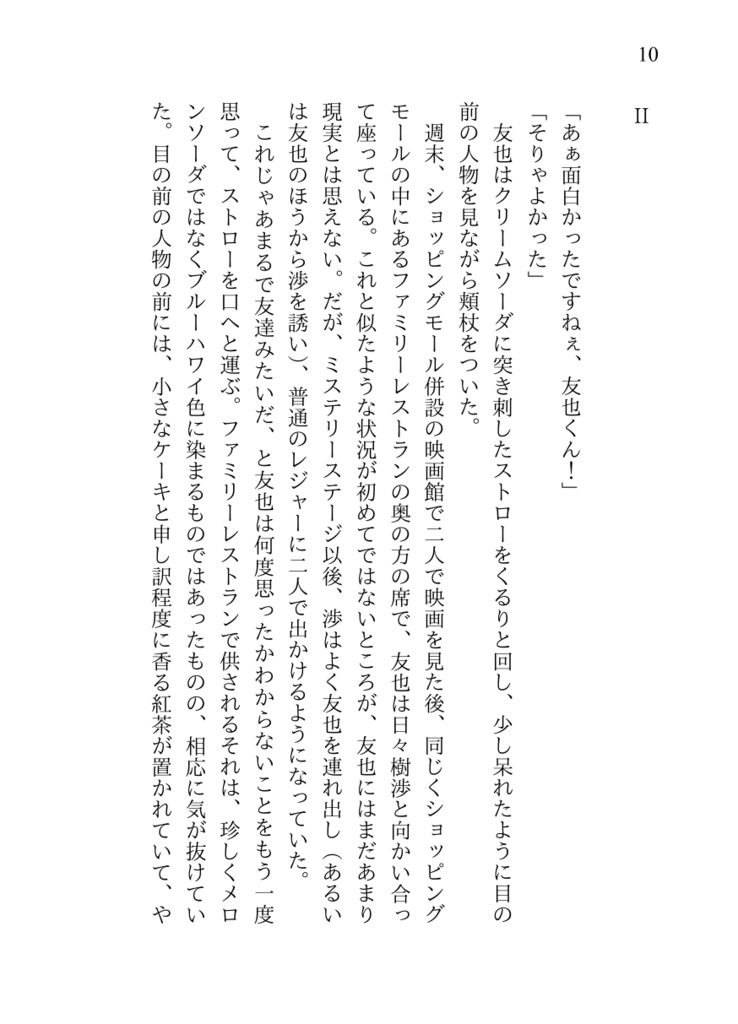 10
II
「あぁ面白かったですねぇ、友也くん！」
「そりゃよかった」
　友也はクリームソーダに突き刺したストローをくるりと回し、少し呆れたように目の
前の人物を見ながら頬杖をついた。
　週末、ショッピングモール併設の映画館で二人で映画を見た後、同じくショッピング
モールの中にあるファミリーレストランの奥の方の席で、友也は日々樹渉と向かい合っ
て座っている。これと似たような状況が初めてではないところが、友也にはまだあまり
現実とは思えない。だが、ミステリーステージ以後、渉はよく友也を連れ出し（あるい
は友也のほうから渉を誘い）、普通のレジャーに二人で出かけるようになっていた。
　これじゃあまるで友達みたいだ、と友也は何度思ったかわからないことをもう一度
思って、ストローを口へと運ぶ。ファミリーレストランで供されるそれは、珍しくメロ
ンソーダではなくブルーハワイ色に染まるものではあったものの、相応に気が抜けてい
た。目の前の人物の前には、小さなケーキと申し訳程度に香る紅茶が置かれていて、や